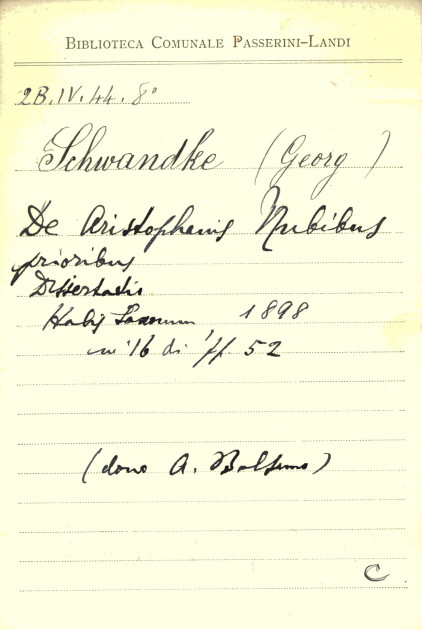 BIBLIOTECA COMUNALE PASSERINI-LANDI
2B.IV.44.8°
Schwandke (Georg)
De Aristophanis Nubibus
prioribus
Dissertatio
Halis Saxonum, 1898
in 16 di ff. 52
(dono A. Balsamo)
C